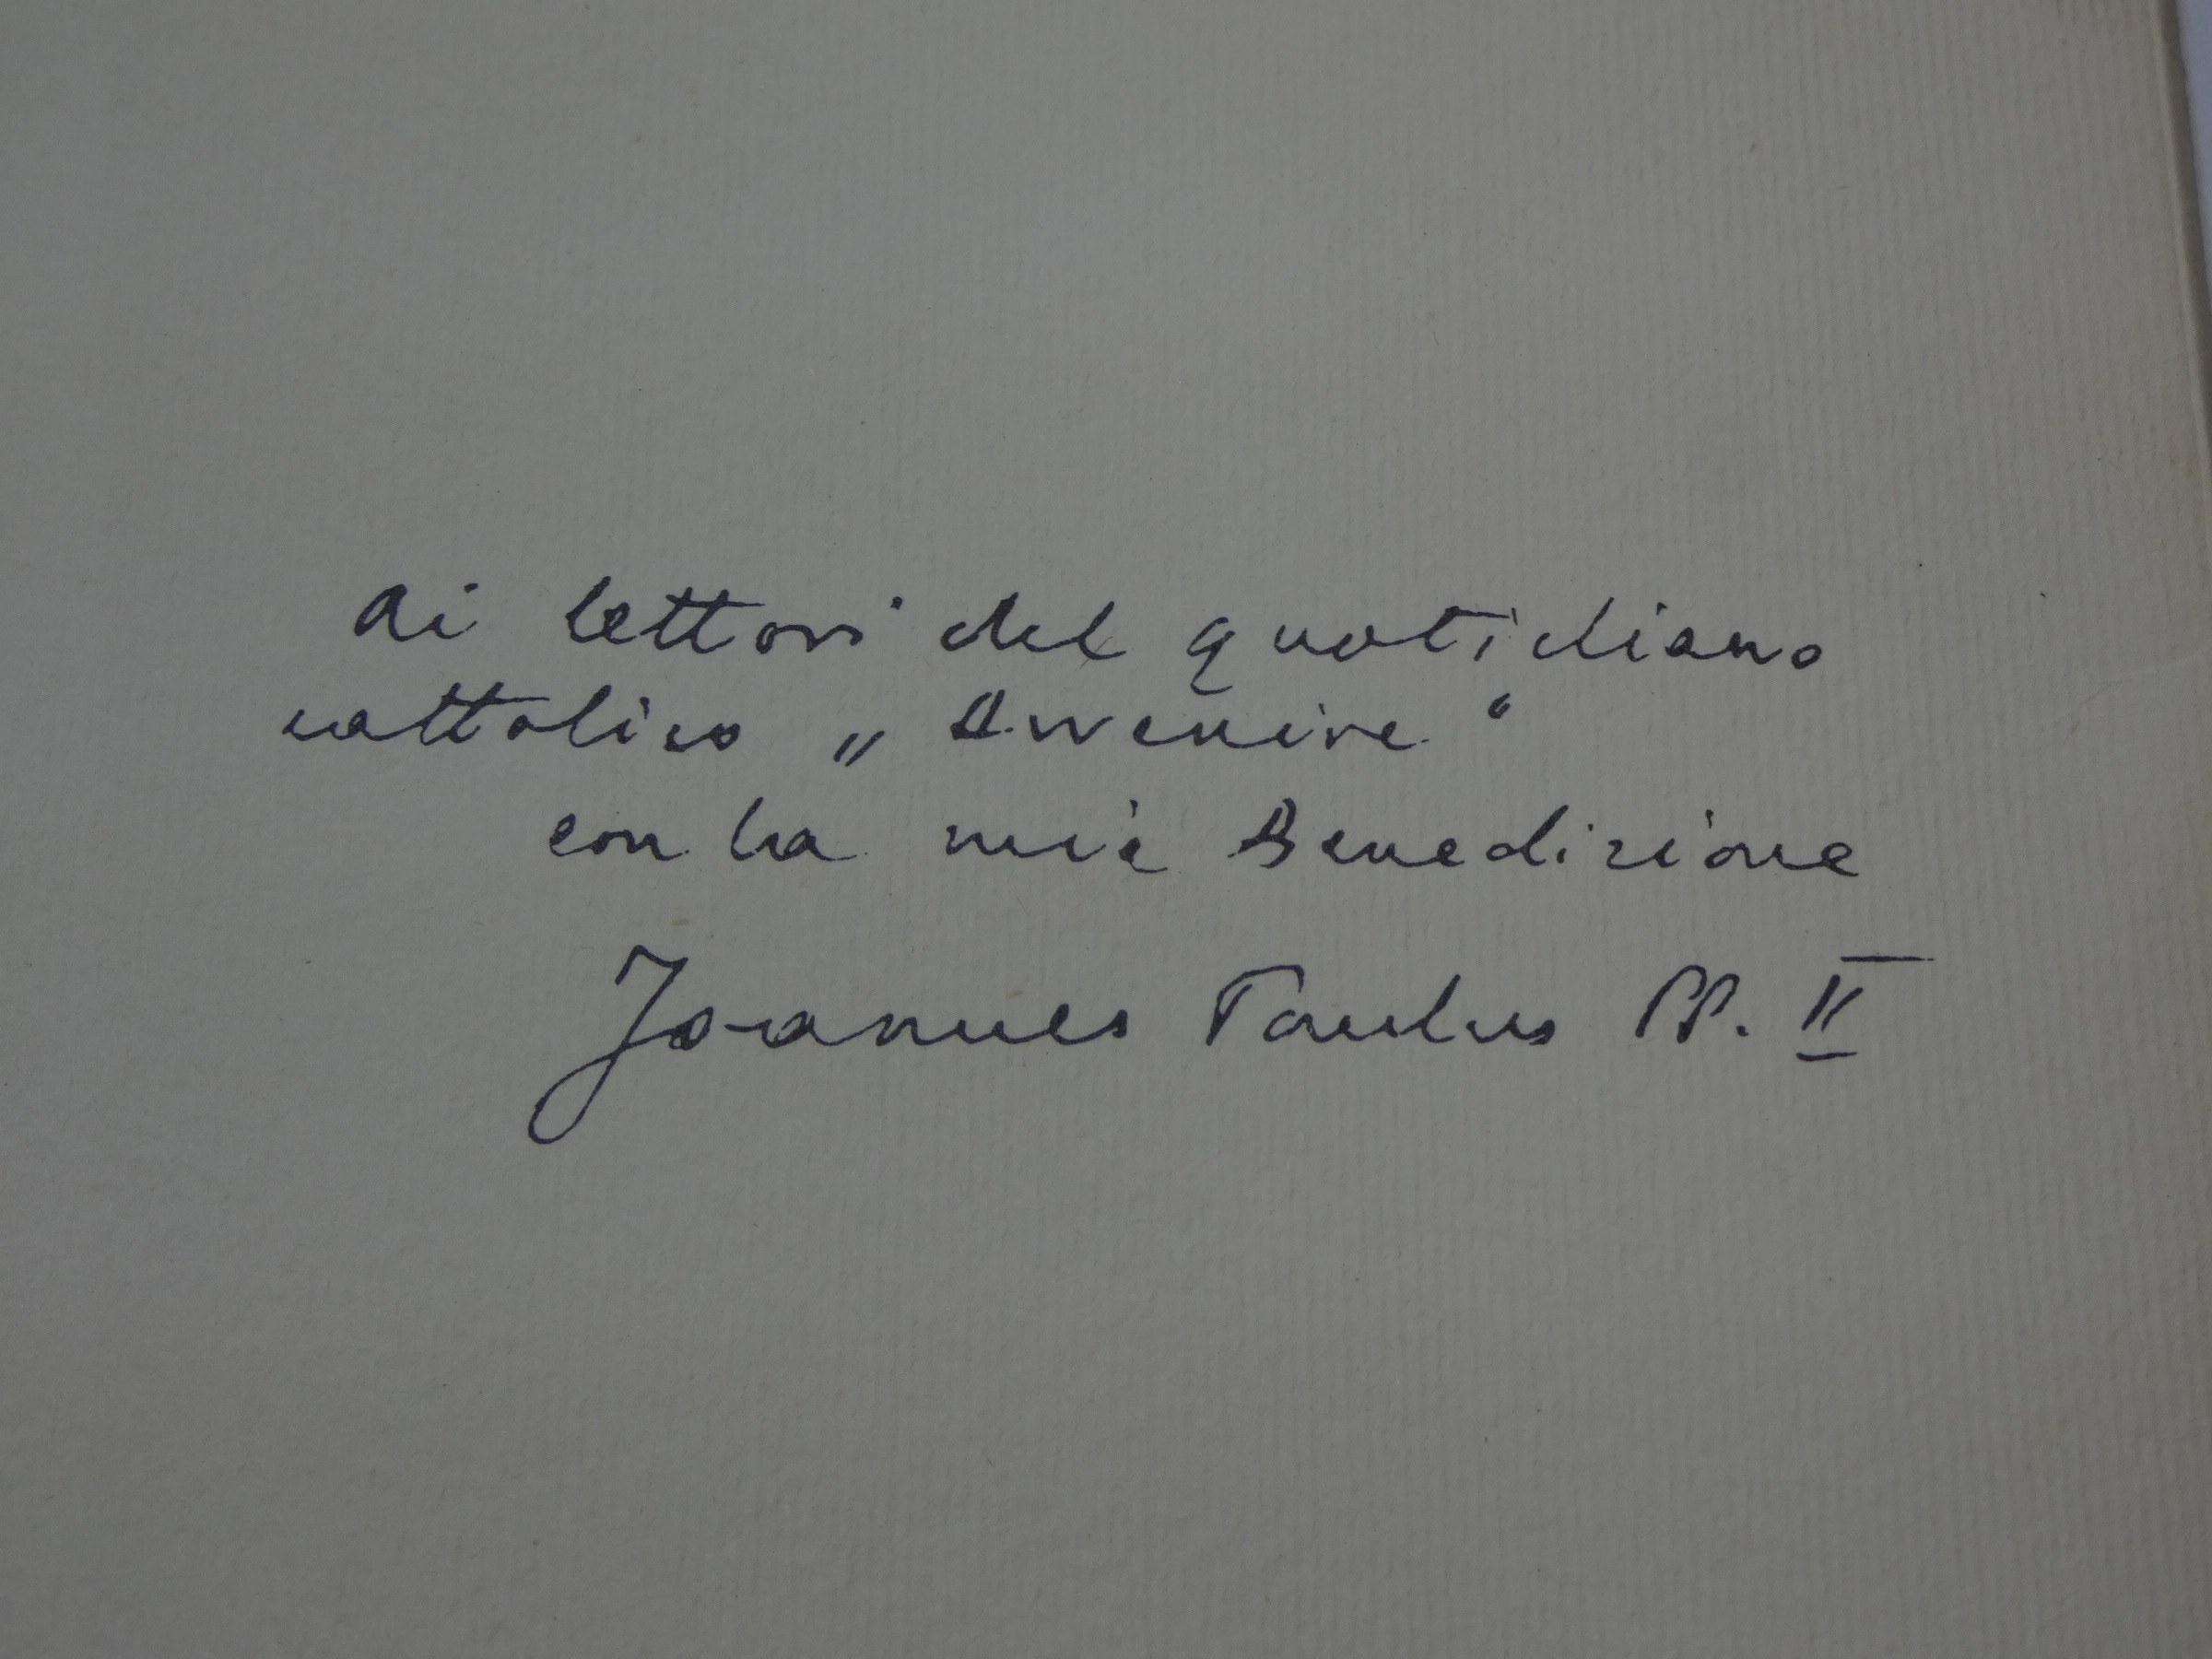 Ai lettori del quotidiano
cattolico „Avvenire“
con la mia Benedizione
Joannes Paulus PP. II